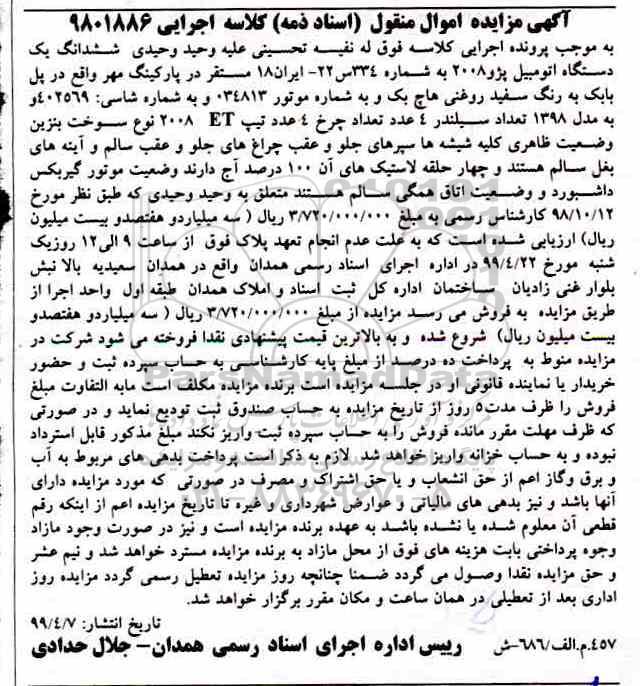 آگهی مزایده اموال منقول (اسناد ذمه) کلاسه اجرایی ۹۸۰۱۸۸۶
به موجب پرونده اجرایی کلاسه فوق له نفیسه تحسینی علیه وحید وحیدی ششدانگ یک
دستگاه اتومبیل پژو۲۰۰۸ به شماره ۳۳۴س۲۲- ایران۱۸ مستقر در پارکینگ مهر واقع در پل
بابک به رنگ سفید روغنی هاچ بک و به شماره موتور ۰۳۴۸۱۳ و به شماره شاسی: ۴۰۲۵۶۹و
به مدل ۱۳۹۸ تعداد سیلندر ۴ عدد تعداد چرخ ۴ عدد تیپ ET ۲۰۰۸ نوع سوخت بنزین
وضعیت ظاهری کلیه شیشه ها سپرهای جلو و عقب چراغ های جلو و عقب سالم و آینه های
بغل سالم هستند و چهار حلقه لاستیک های آن ۱۰۰ درصد آج دارند وضعیت موتور گیربکس
داشبورد و وضعیت اتاق همگی سالم هستند متعلق به وحید وحیدی که طبق نظر مورخ
۹۸/۱۰/۱۲ کارشناس رسمی به مبلغ ۳/۷۲۰/۰۰۰/۰۰۰ ریال ( سه میلیاردو هفتصدو بیست میلیون
ریال) ارزیابی شده است که به علت عدم انجام تعهد پلاک فوق از ساعت ۹ الی۱۲ روزیک
شنبه مورخ ۹۹/۴/۲۲ در اداره اجرای اسناد رسمی همدان واقع در همدان سعیدیه بالا نبش
بلوار غنی زادیان ساختمان اداره کل ثبت اسناد و املاک همدان طبقه اول واحد اجرا از
طریق مزایده به فروش می رسد مزایده از مبلغ ۳/۷۲۰/۰۰۰/۰۰۰ ریال ( سه میلیاردو هفتصدو
بیست میلیون ریال) شروع شده و به بالاترین قیمت پیشنهادی نقدا فروخته می شود شرکت در
مزایده منوط به پرداخت ده درصد از مبلغ پایه کارشناسی به حساب سپرده ثبت و حضور
خریدار یا نماینده قانونی او در جلسه مزایده است برنده مزایده مکلف است مابه التفاوت مبلغ
فروش را ظرف مدت۵ روز از تاریخ مزایده به حساب صندوق ثبت تودیع نماید و در صورتی
که ظرف مهلت مقرر مانده فروش را به حساب سپرده ثبت واریز نکند مبلغ مذکور قابل استرداد
نبوده و به حساب خزانه واریز خواهد شد لازم به ذکر است پرداخت بدهی های مربوط به آب
و برق وگاز اعم از حق انشعاب و یا حق اشتراک و مصرف در صورتی که مورد مزایده دارای
آنها باشد و نیز بدهی های مالیاتی و عوارض شهرداری و غیره تا تاریخ مزایده اعم از اینکه رقم
قطعی آن معلوم شده یا نشده باشد به عهده برنده مزایده است و نیز در صورت وجود مازاد
وجوه پرداختی بابت هزینه های فوق از محل مازاد به برنده مزایده مسترد خواهد شد و نیم عشر
و حق مزایده نقدا وصول می گردد ضمنا چنانچه روز مزایده تعطیل رسمی گردد مزایده روز
اداری بعد از تعطیلی در همان ساعت و مکان مقرر برگزار خواهد شد.
تاریخ انتشار: ۹۹/۴/۷
۴۵۷.م.الف/۶۸۶-ش رییس اداره اجرای اسناد رسمی همدان- جلال حدادی